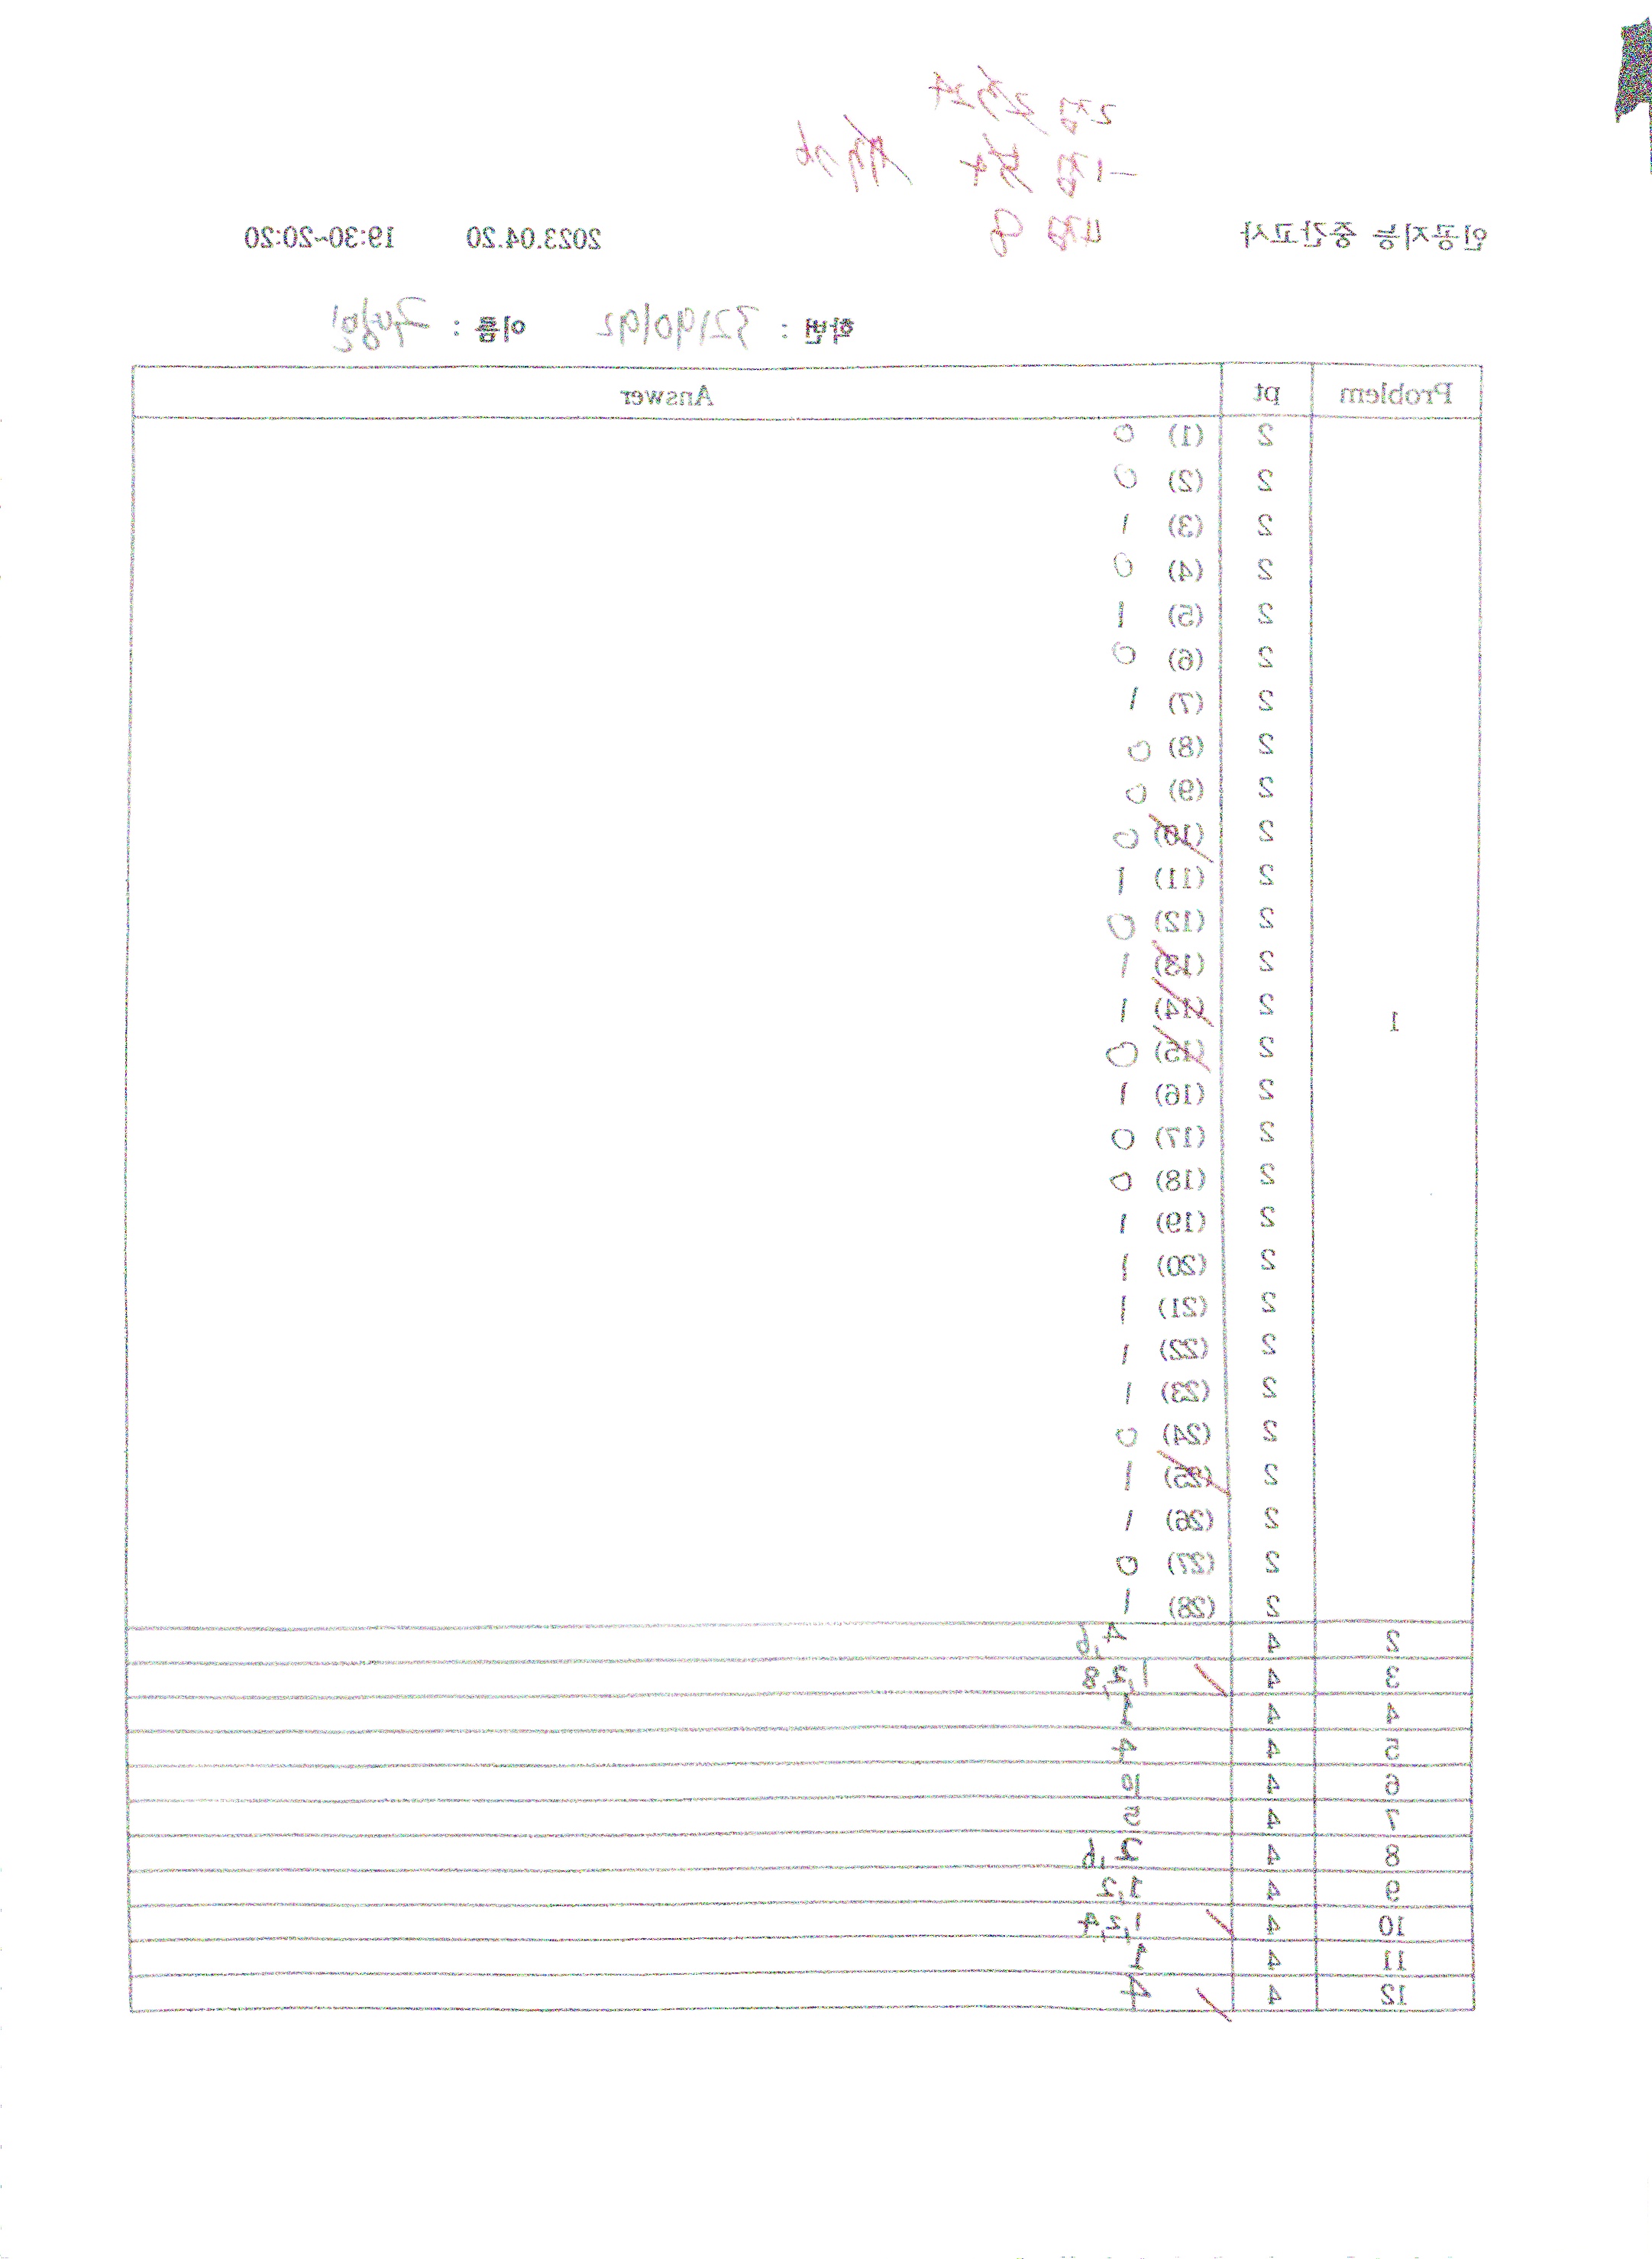 2점
-1점
4점 8
인공지능 중간고사 2023.04.20 19:30~20:20
학번 : 32190192 이름 :
Problem pt Answer
1
2 (1) 0
2 (2) 0
2 (3) 1
2 (4) 0
2 (5) 1
2 (6) 0
2 (7) 1
2 (8) 0
2 (9) 0
2 (10) 0
2 (11) 1
2 (12) 0
2 (13) 1
2 (14) 1
2 (15) 0
2 (16) 1
2 (17) 0
2 (18) 0
2 (19) 1
2 (20) 1
2 (21) 1
2 (22) 1
2 (23) 1
2 (24) 0
2 (25) 1
2 (26) 1
2 (27) 0
2 (28) 1
2 4 4,6
3 4 1,2,8
4 4 1
5 4 4
6 4 10
7 4 5
8 4 2,6
9 4 1,2
10 4 1,2,4
11 4 1
12 4 4